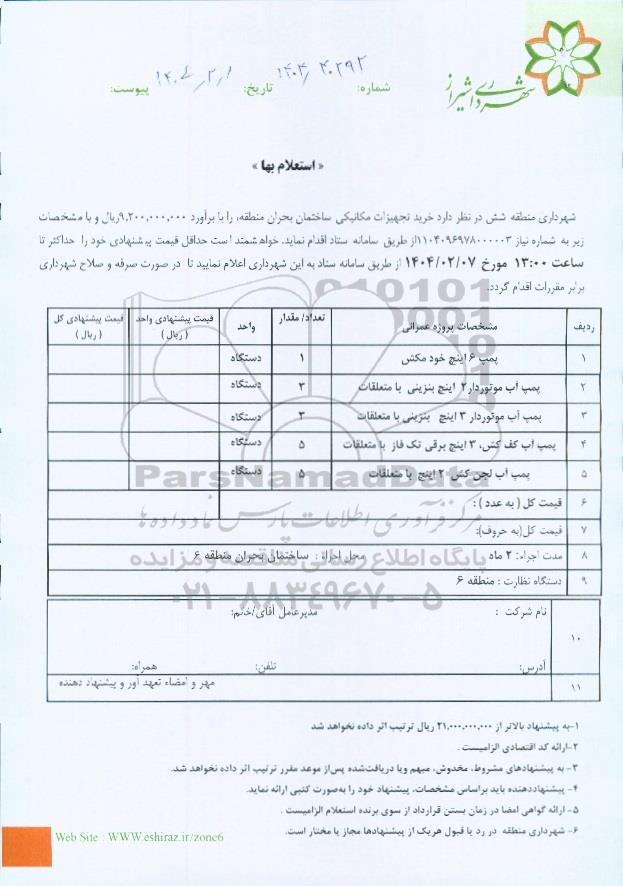 شهرداری شیراز
شماره: ۱۴۰۴/۴۰۲۹۲
تاریخ: ۱۴۰۴/۲/۱
پیوست:
« استعلام بها »
شهرداری منطقه شش در نظر دارد خرید تجهیزات مکانیکی ساختمان بحران منطقه، را با برآورد ۹،۲۰۰،۰۰۰،۰۰۰ریال و با مشخصات
زیر به شماره نیاز ۱۱۰۴۰۹۶۹۷۸۰۰۰۰۰۳از طریق سامانه ستاد اقدام نماید. خواهشمند است حداقل قیمت پیشنهادی خود را حداکثر تا
ساعت ۱۳:۰۰ مورخ ۱۴۰۴/۰۲/۰۷ از طریق سامانه ستاد به این شهرداری اعلام نمایید تا در صورت صرفه و صلاح شهرداری
برابر مقررات اقدام گردد.
ردیف مشخصات پروژه عمرانی تعداد/ مقدار واحد قیمت پیشنهادی واحد ( ریال ) قیمت پیشنهادی کل ( ریال )
۱ پمپ ۶ اینچ خود مکش ۱ دستگاه
۲ پمپ آب موتوردار ۲ اینچ بنزینی با متعلقات ۳ دستگاه
۳ پمپ آب موتوردار ۳ اینچ بنزینی با متعلقات ۳ دستگاه
۴ پمپ آب کف کش، ۳ اینچ برقی تک فاز با متعلقات ۵ دستگاه
۵ پمپ آب لجن کش ۲ اینچ با متعلقات ۵ دستگاه
۶ قیمت کل ( به عدد ) :
۷ قیمت کل(به حروف):
۸ مدت اجراء: ۲ ماه محل اجراء : ساختمان بحران منطقه ۶
۹ دستگاه نظارت : منطقه ۶
نام شرکت : مدیرعامل آقای/خانم:
۱۰
آدرس: تلفن: همراه:
۱۱ مهر و امضاء تعهد آور و پیشنهاد دهنده
۱-به پیشنهاد بالاتر از ۲۱،۰۰۰،۰۰۰،۰۰۰ ریال ترتیب اثر داده نخواهد شد
۲-ارائه کد اقتصادی الزامیست .
۳- به پیشنهادهای مشروط، مخدوش، مبهم ویا دریافت‌شده پس‌از موعد مقرر ترتیب اثر داده نخواهد شد.
۴- پیشنهاددهنده باید براساس مشخصات، پیشنهاد خود را به‌صورت کتبی ارائه نماید.
۵- ارائه گواهی امضا در زمان بستن قرارداد از سوی برنده استعلام الزامیست .
۶- شهرداری منطقه در رد یا قبول هریک از پیشنهادها مجاز یا مختار است.
Web Site : WWW.eshiraz.ir/zone6
ParsNamadData
مرکز فرآوری اطلاعات پارس نماد داده ها
پایگاه اطلاع رسانی مناقصه و مزایده
۰۲۱-۸۸۳۴۹۶۷۰-۵